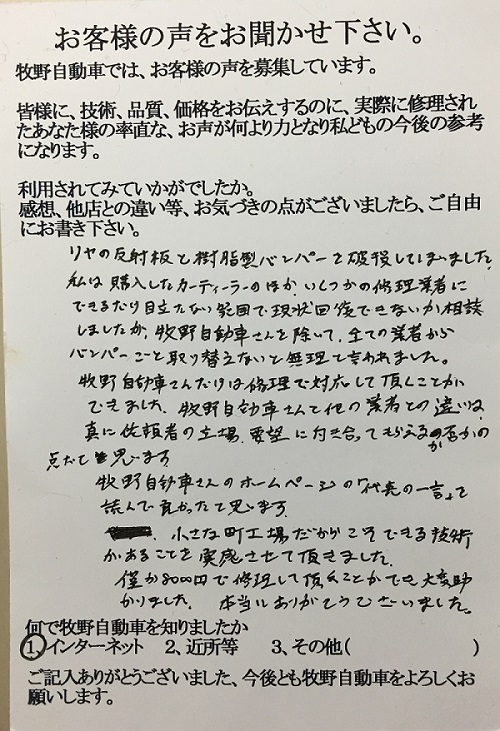 お客様の声をお聞かせ下さい。
牧野自動車では、お客様の声を募集しています。
皆様に、技術、品質、価格をお伝えするのに、実際に修理され
たあなた様の率直な、お声が何より力となり私どもの今後の参考
になります。
利用されてみていかがでしたか。
感想、他店との違い等、お気づきの点がございましたら、ご自由
にお書き下さい。
リヤの反射板と樹脂製バンパーを破損してしまいました。
私は購入したカーディーラーのほかいくつかの修理業者に
できるだけ目立たない範囲で現状回復できないか相談
しましたが、牧野自動車さんを除いて、全ての業者から
バンパーごと取り替えないと無理と言われました。
牧野自動車さんだけは修理で対応して頂くことが
できました。牧野自動車さんと他の業者との違いは、
真に依頼者の立場、要望に向き合ってもらえるのか否かの
点だと思います
牧野自動車さんのホームページの「代表の一言」を
読んで良かったと思います。
小さな町工場だからこそできる技術
があることを実感させて頂きました。
僅か8000円で修理して頂くことができ大変助
かりました。本当にありがとうございました。
何で牧野自動車を知りましたか
1、インターネット 2、近所等 3、その他( )
ご記入ありがとうございました、今後とも牧野自動車をよろしくお
願いします。